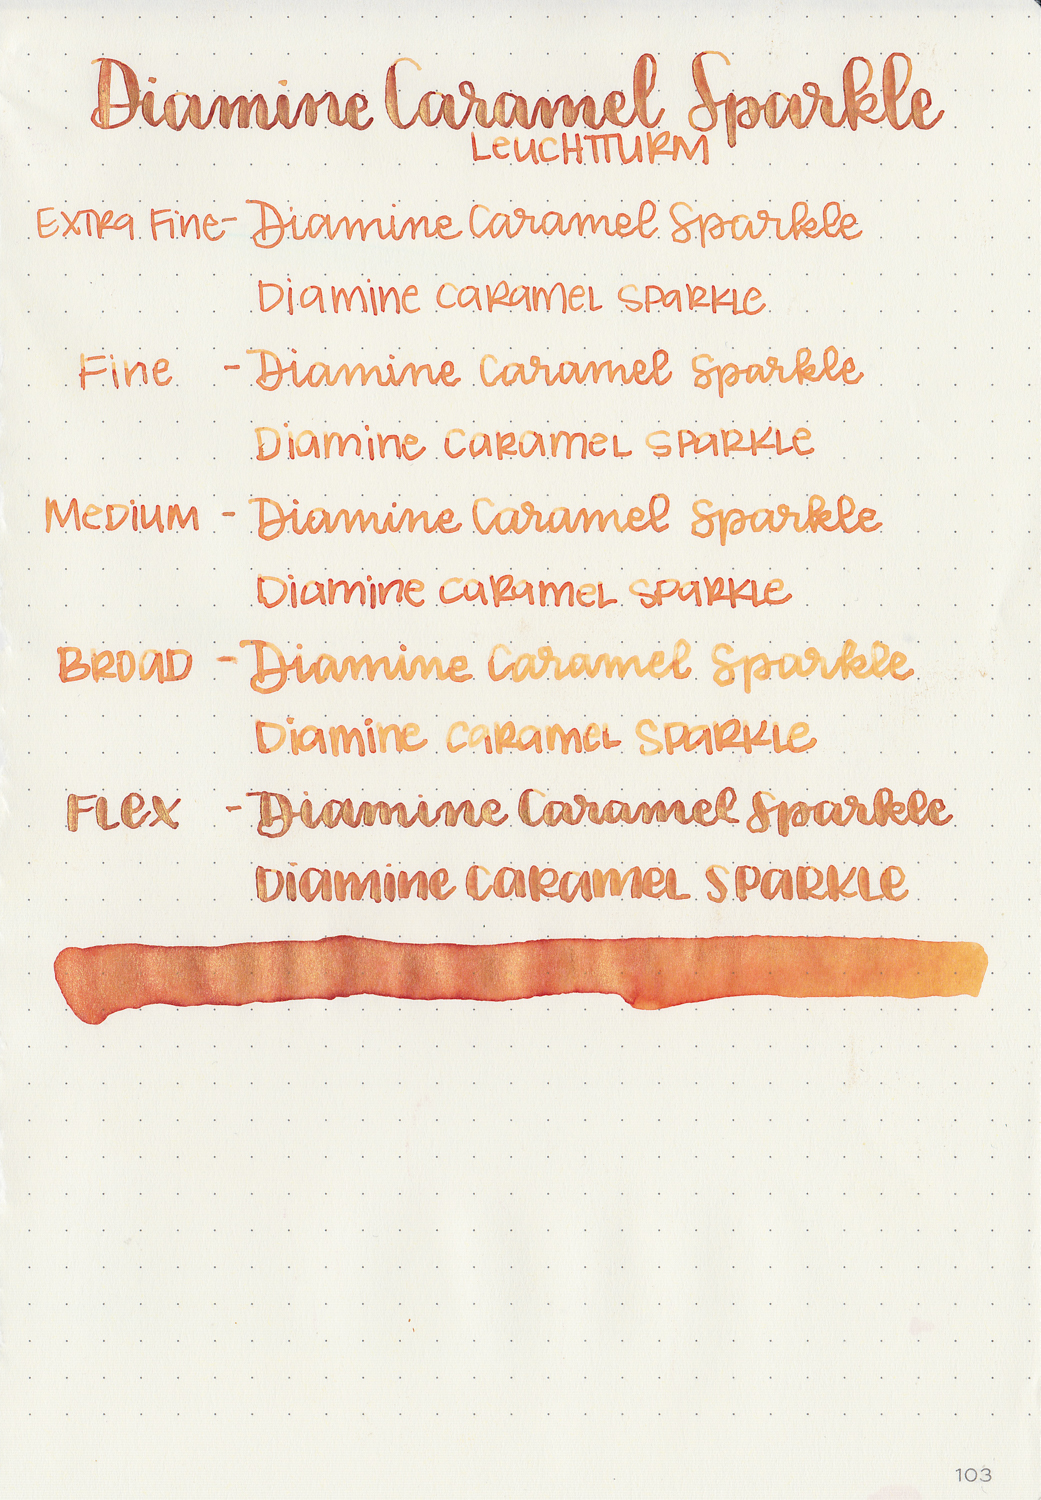 Diamine Caramel Sparkle
LEUCHTTURM
EXTRA FINE - Diamine Caramel Sparkle
Diamine CARAMEL SPARKLE
Fine - Diamine Caramel Sparkle
Diamine CARAMEL SPARKLE
MEDIUM - Diamine Caramel Sparkle
Diamine CARAMEL SPARKLE
BROAD - Diamine Caramel Sparkle
Diamine CARAMEL SPARKLE
FLEX - Diamine Caramel Sparkle
Diamine CARAMEL SPARKLE
103